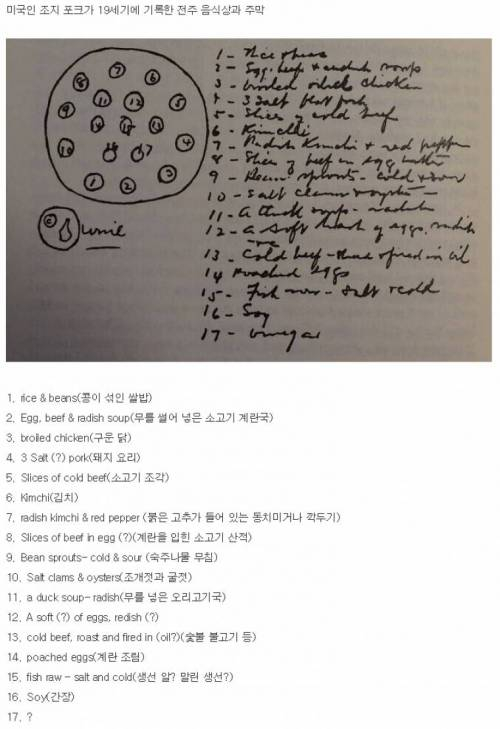 미국인 조지 포크가 19세기에 기록한 전주 음식상과 주막
1 - Rice & beans
2 - Egg, beef & radish soup
3 - broiled chicken
4 - 3 Salt pork
5 - Slices of cold beef
6 - Kimchi
7 - Radish Kimchi & red pepper
8 - Slices of beef in egg batter
9 - Bean sprouts - cold & sour
10 - Salt clams & oysters -
11 - A duck soup - radish
12 - A soft of eggs, radish
13 - Cold beef - fried in oil
14 Poached eggs
15 - Fish - salt & cold
16 - Soy
17 - vinegar
7
8
6
9
11
12
5
10
14
15
13
4
16
17
1
2
3
wine
1. rice & beans(콩이 섞인 쌀밥)
2. Egg, beef & radish soup(무를 썰어 넣은 소고기 계란국)
3. broiled chicken(구운 닭)
4. 3 Salt (?) pork(돼지 요리)
5. Slices of cold beef(소고기 조각)
6. Kimchi(김치)
7. radish kimchi & red pepper (붉은 고추가 들어 있는 동치미거나 깍두기)
8. Slices of beef in egg (?)(계란을 입힌 소고기 산적)
9. Bean sprouts- cold & sour (숙주나물 무침)
10. Salt clams & oysters(조개젓과 굴젓)
11. a duck soup- radish(무를 넣은 오리고기국)
12. A soft (?) of eggs, redish (?)
13. cold beef, roast and fired in (oil?)(숯불 불고기 등)
14. poached eggs(계란 조림)
15. fish raw - salt and cold(생선 알? 말린 생선?)
16. Soy(간장)
17. ?